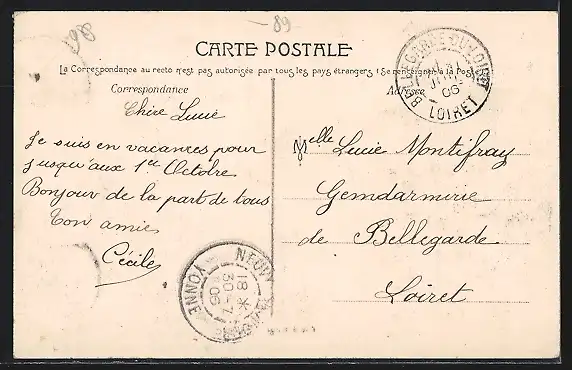 89
CARTE POSTALE
La Correspondance au recto n'est pas autorisée par tous les pays étrangers (Se renseigner à la Poste)
Correspondance
Adresse
Chère Lucie
Je suis en vacances pour
jusqu'aux 1er Octobre
Bonjour de la part de tous
Ton amie
Cécile
Melle Lucie Montifray
Gemdarmerie
de Bellegarde
Loiret
BELLEGARDE-DU-LOIRET
06
LOIRET
YONNE
18 *
30-7
06